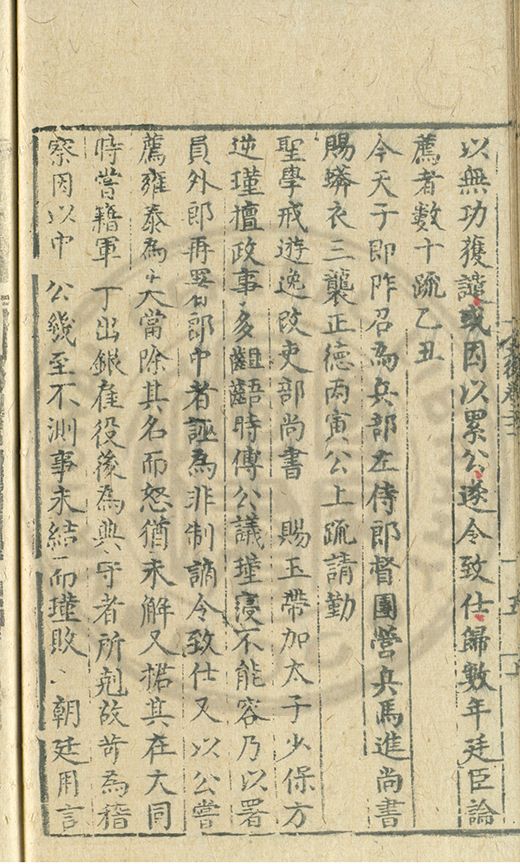 以無功獲譴或因以累公遂令致仕歸數年廷臣論
薦者數十疏乙丑
今天子即阼召為兵部左侍郎督團營兵馬進尚書
賜蟒衣三襲正德丙寅公上疏請勤
聖學戒遊逸改吏部尚書　賜玉帶加太子少保方
逆瑾擅政事多齟齬時傳公議瑾寖不能容乃以署
員外郎再署郎中者誣為非制謫令致仕又以公嘗
薦雍泰為大當除其名而怒猶未解又掿其在大同
時嘗籍軍　丁出銀雇役後為典守者所剋故苛為稽
察因以中　公幾至不測事未結而瑾敗　朝廷用言